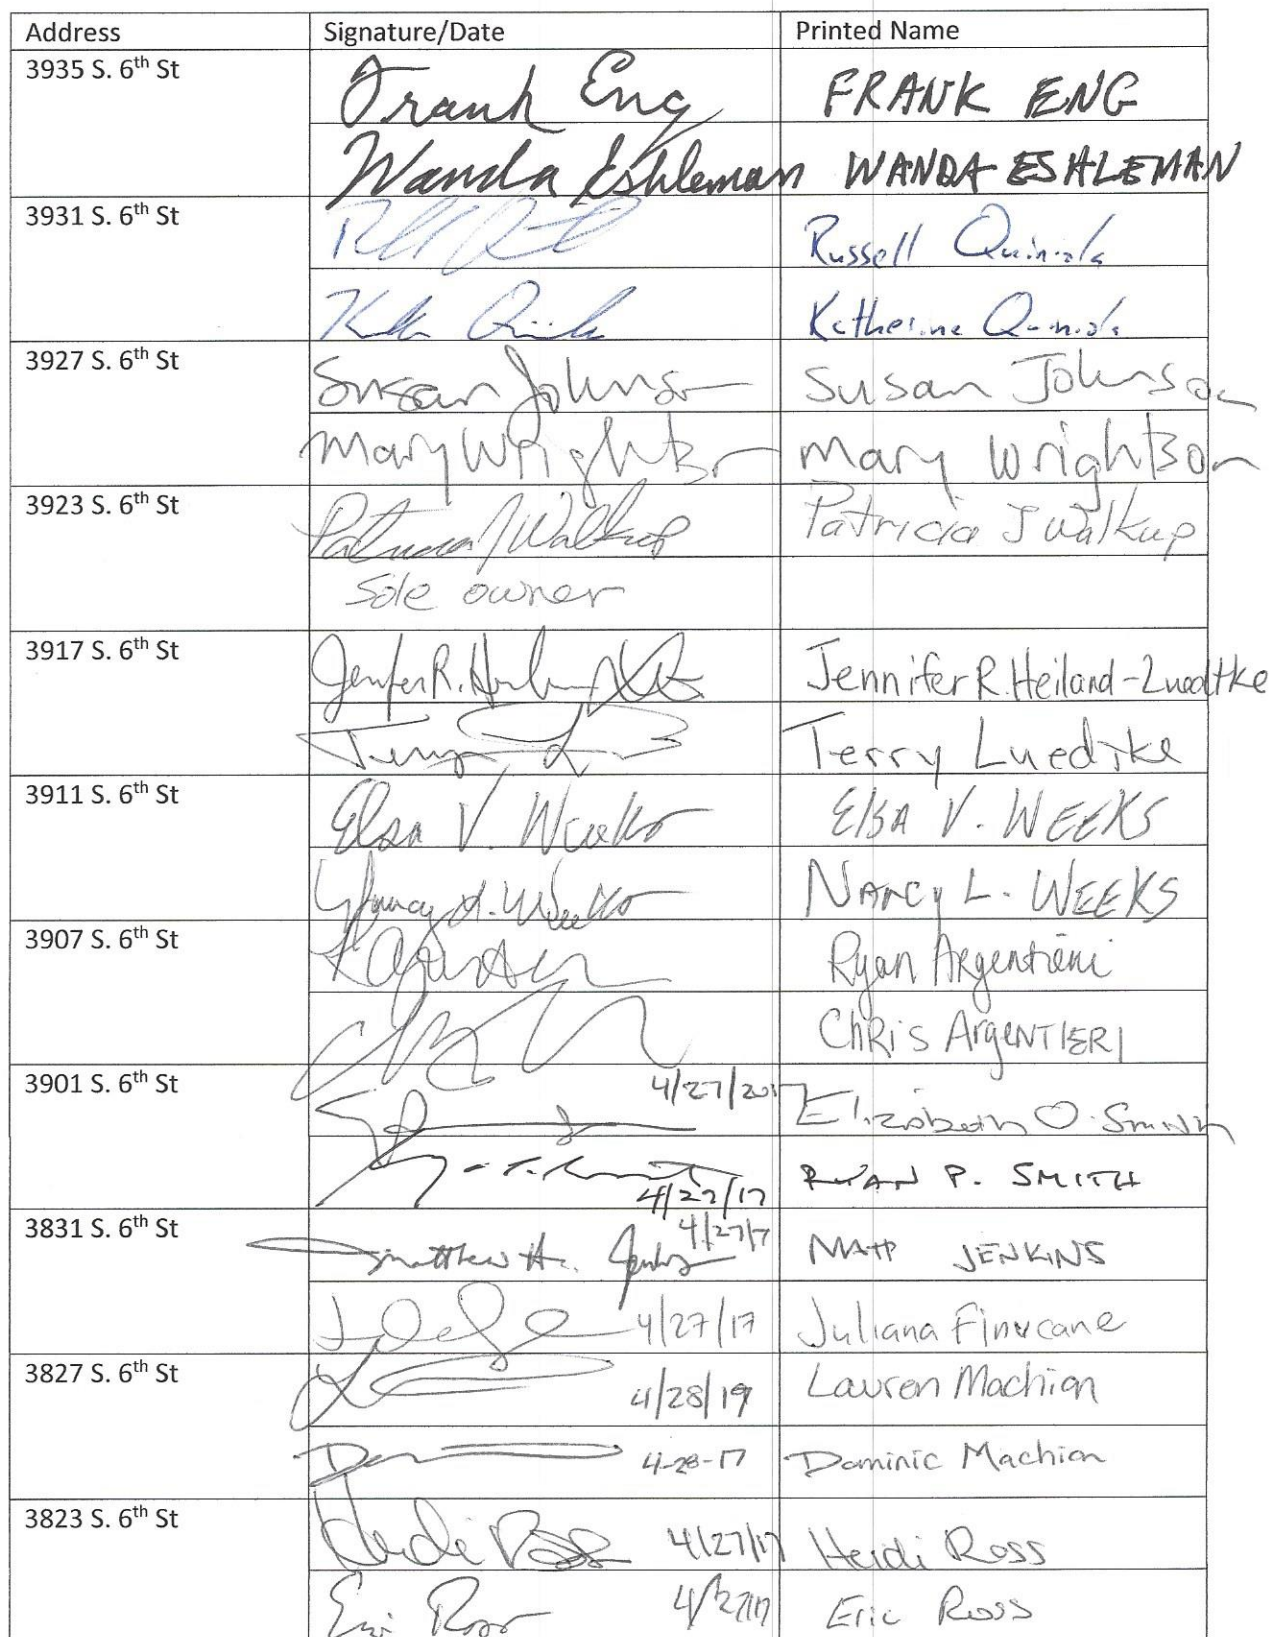 Address Signature/Date Printed Name
3935 S. 6th St Frank Eng FRANK ENG
Wanda Eshleman WANDA ESHLEMAN
3931 S. 6th St Russell Quiniola
Katherine
3927 S. 6th St Susan Johnson Susan Johnson
Mary Wrightson Mary Wrightson
3923 S. 6th St Patricia J Walkup Patricia J Walkup
Sole owner
3917 S. 6th St Jennifer R. Jennifer R. Heiland-Luedtke
Terry Terry Luedtke
3911 S. 6th St Elsa V. Weeks ElsA V. WEEKS
Nancy L. Weeks NANCY L. WEEKS
3907 S. 6th St Ryan Argentieri
ChRis ArgENTIERI
3901 S. 6th St 4/27/2017 Elizabeth O. Smith
4/27/17 RYAN P. SMITH
3831 S. 6th St Matthew H. Jenkins 4/27/17 MATT JENKINS
4/27/17 Juliana Finucane
3827 S. 6th St 4/28/17 Lauren Machian
4-28-17 Dominic Machian
3823 S. 6th St Heidi Ross 4/27/17 Heidi Ross
Eric Ross 4/27/17 Eric Ross